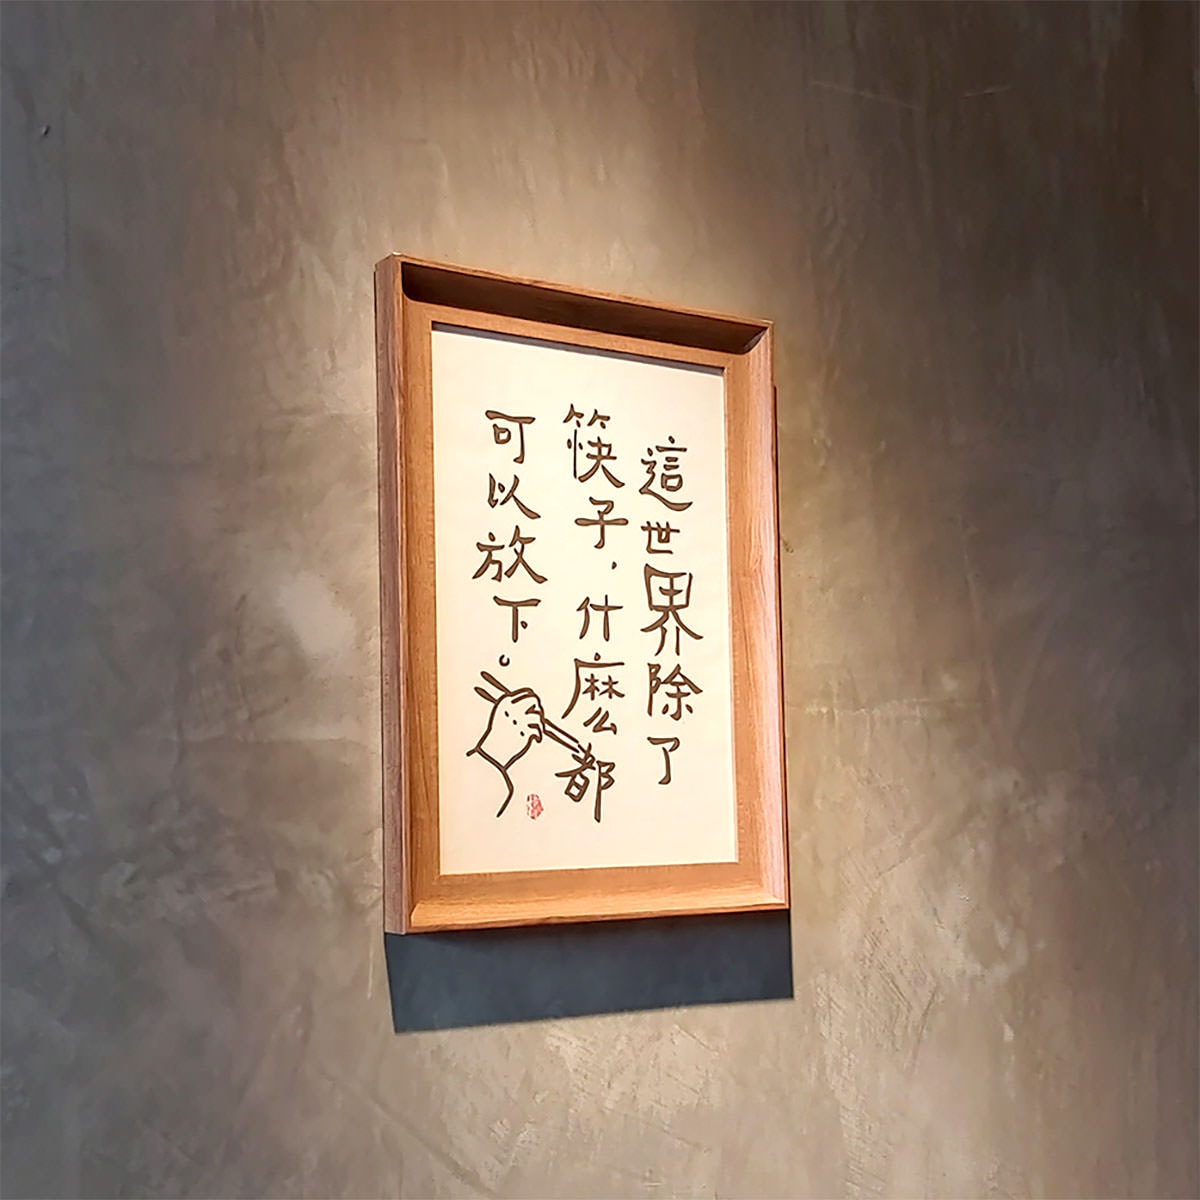 這世界除了
筷子，什麽都
可以放下。